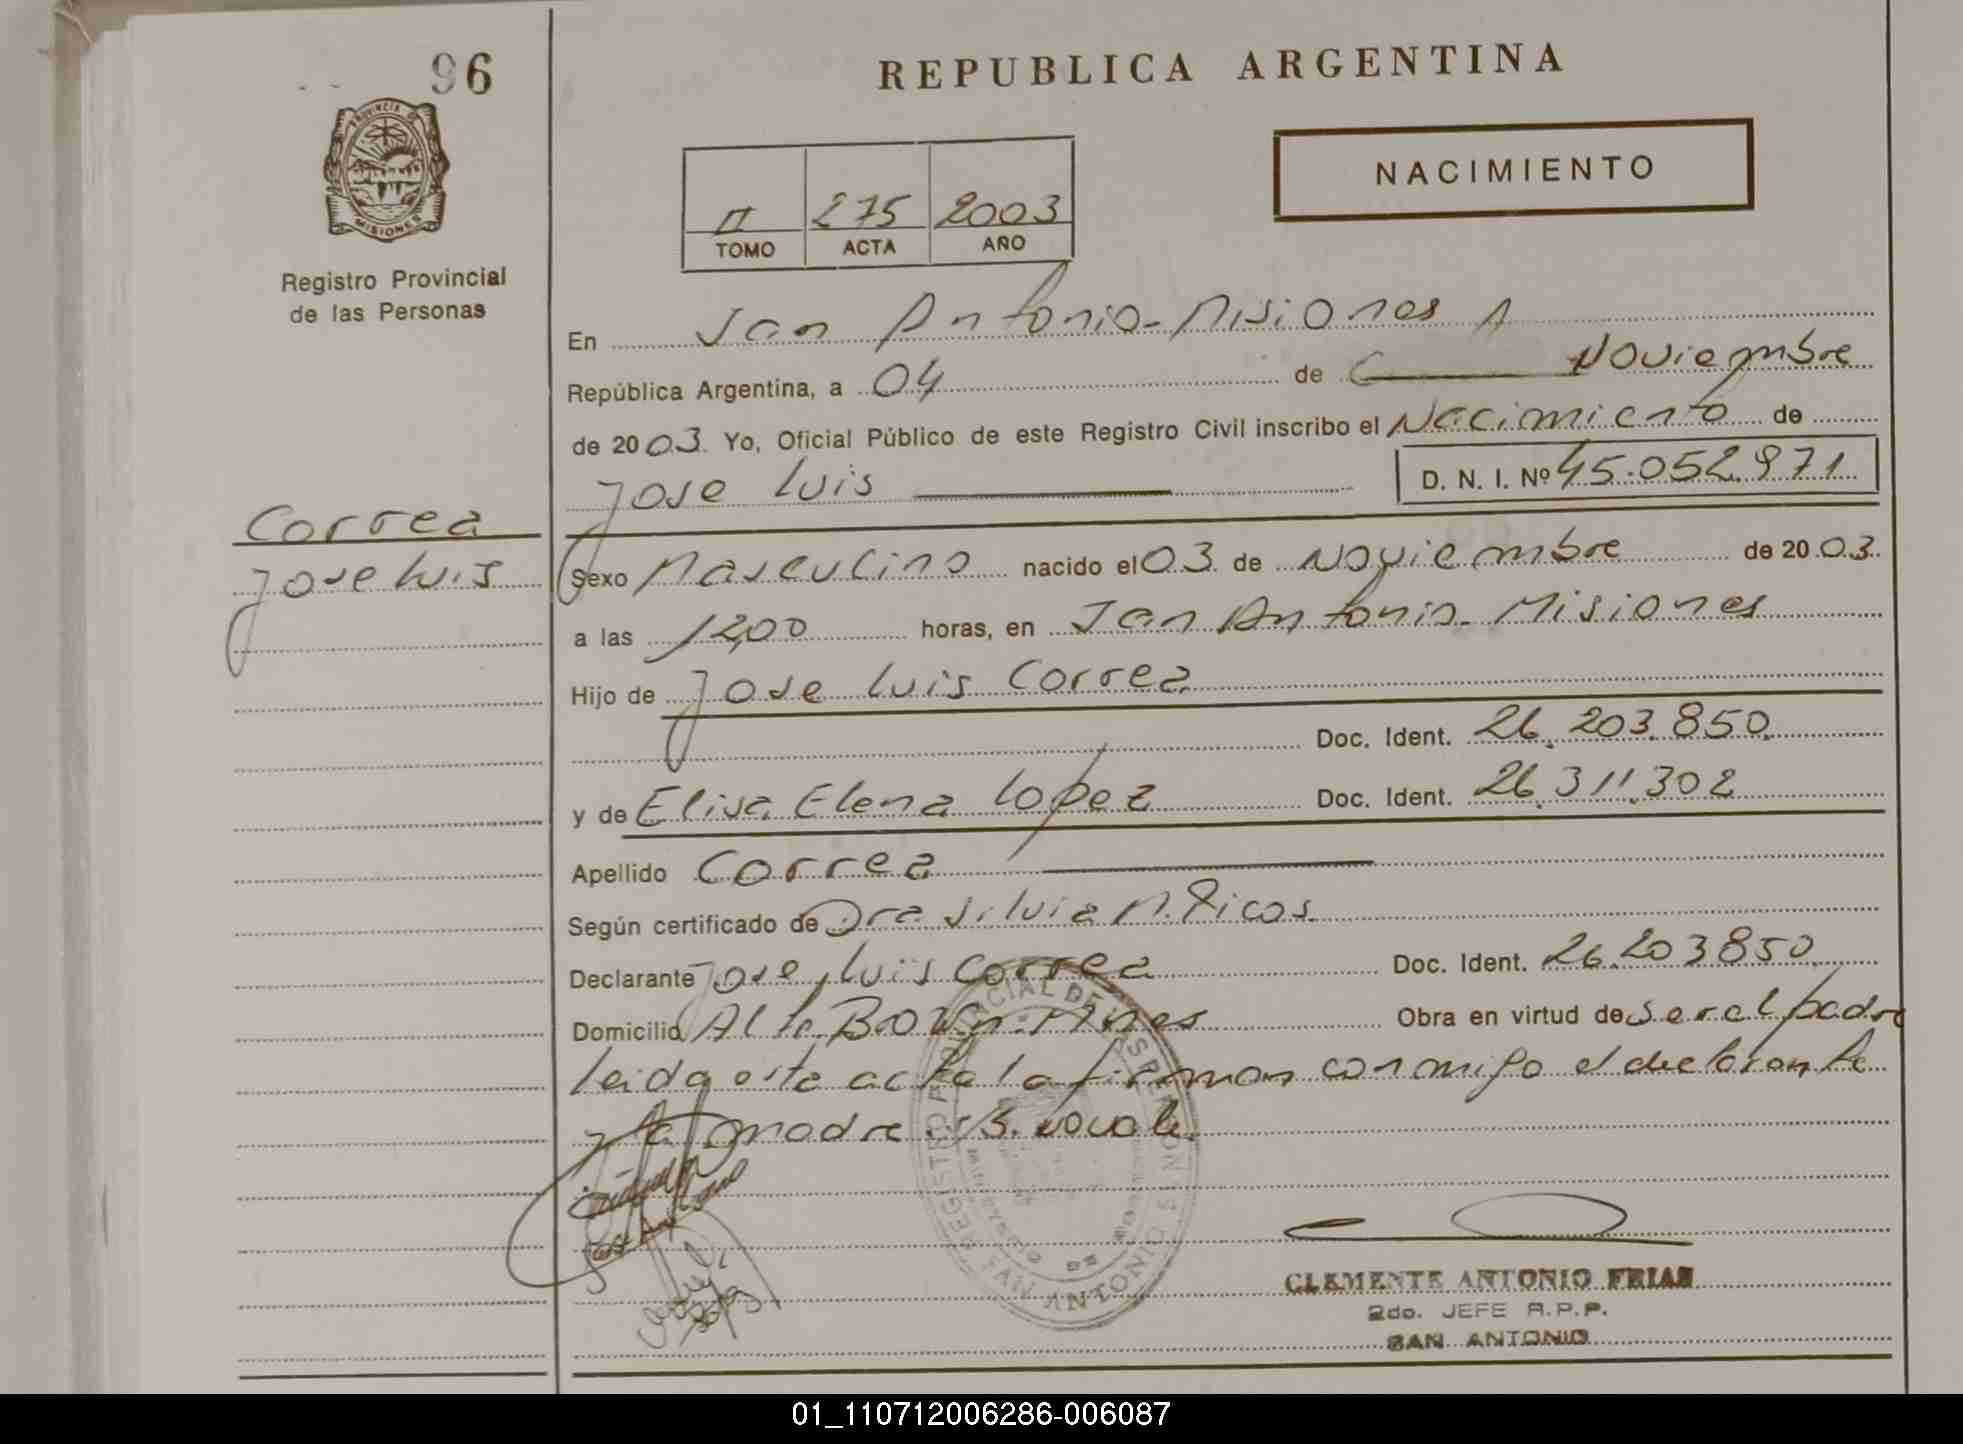 96
PROVINCIA DE
MISIONES
Registro Provincial
de las Personas
Correa
Jose Luis
REPUBLICA ARGENTINA
NACIMIENTO
II 275 2003
TOMO ACTA AÑO
En San Antonio - Misiones
República Argentina, a 04 de Noviembre
de 2003. Yo, Oficial Público de este Registro Civil inscribo el Nacimiento de
Jose Luis D. N. I. Nº 45.052.971
Sexo Masculino nacido el 03 de Noviembre de 2003.
a las 12,00 horas, en San Antonio - Misiones
Hijo de Jose Luis Correa
Doc. Ident. 26.203.850
y de Elisa Elena Lopez Doc. Ident. 26.311.302
Apellido Correa
Según certificado de Dra Silvia N. Ricos
Declarante Jose Luis Correa Doc. Ident. 26.203850
Domicilio Alte Brown - Mnes Obra en virtud de ser el padre
leida esta acta la firman conmigo el declarante
y la madre
REGISTRO PROVINCIAL DE LAS PERSONAS
SAN ANTONIO
CLEMENTE ANTONIO FRIAS
2do. JEFE R.P.P.
SAN ANTONIO
01_110712006286-006087